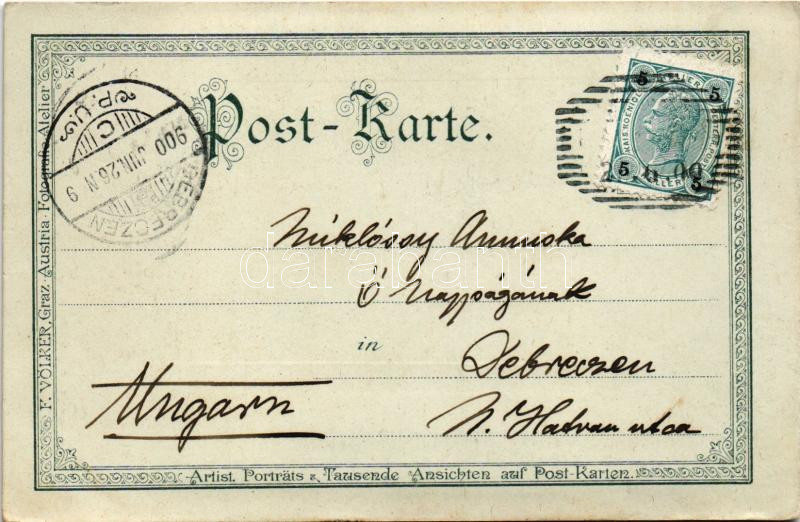 Post-Karte.
P.U.
C
900 JUN. 26. N 9
DEBRECZEN
5 5
5 5
00
Miklóssy Annuska
Ő Nagyságának
in
Debreczen
Ungarn
N. Hatvan utca
darabanth
F. VÖLKER, Graz-Austria-Fotograf. Atelier
Artist. Porträts u. Tausende Ansichten auf Post-Karten.